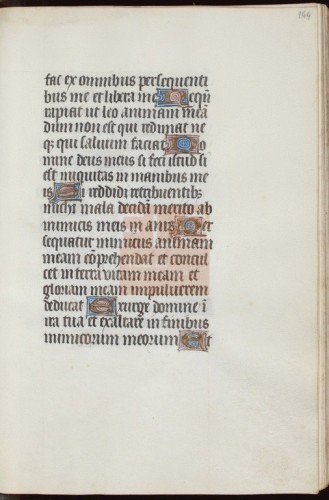 144
fac ex omnibus persequenti
bus me et libera me Neqū
rapiat ut leo animam mea
dum non est qui redimat ne
q; qui saluum faciat Do
mine deus meus si feci istud si
est iniquitas in manibus me
is Si reddidi retribuentib9
michi mala decidā merito ab
inimicis meis inanis Per
sequatur inimicus animam
meam cōprehendat et concul
cet in terra vitam meam et
gloriam meam in pulverem
deducat Exurge domine ī
ira tua et exaltare in finibus
inimicorum meorum Et